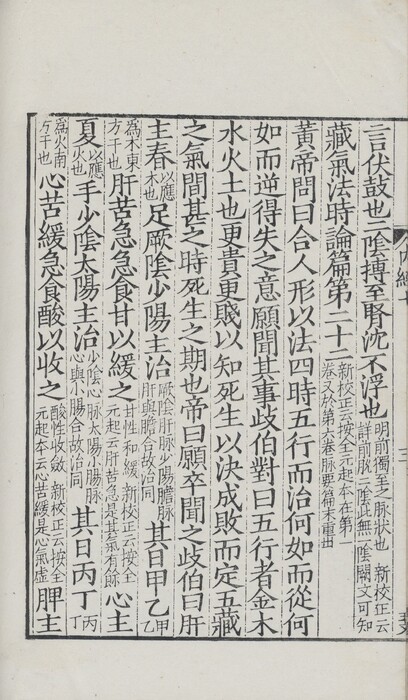 內經七
三
言伏鼓也二陰搏至腎沈不浮也明前獨至之脈狀也 新校正云詳前脫二陰此無一陰闕文可知
藏氣法時論篇第二十二新校正云按全元起本在第一卷又於第六卷脉要篇末重出
黃帝問曰合人形以法四時五行而治何如而從何
如而逆得失之意願聞其事歧伯對曰五行者金木
水火土也更貴更賤以知死生以決成敗而定五藏
之氣間甚之時死生之期也帝曰願卒聞之歧伯曰肝
主春以應木也足厥陰少陽主治厥陰肝脈少陽膽脈肝與膽合故治同其日甲乙甲乙
為木東方干也肝苦急急食甘以緩之甘性和緩 新校正云按全元起云肝苦急是其氣有餘心主
夏以應火也手少陰太陽主治少陰心脈太陽小腸脈心與小腸合故治同其日丙丁丙丁
為火南方干也心苦緩急食酸以收之酸性收斂 新校正云按全元起本云心苦緩是心氣虛脾主